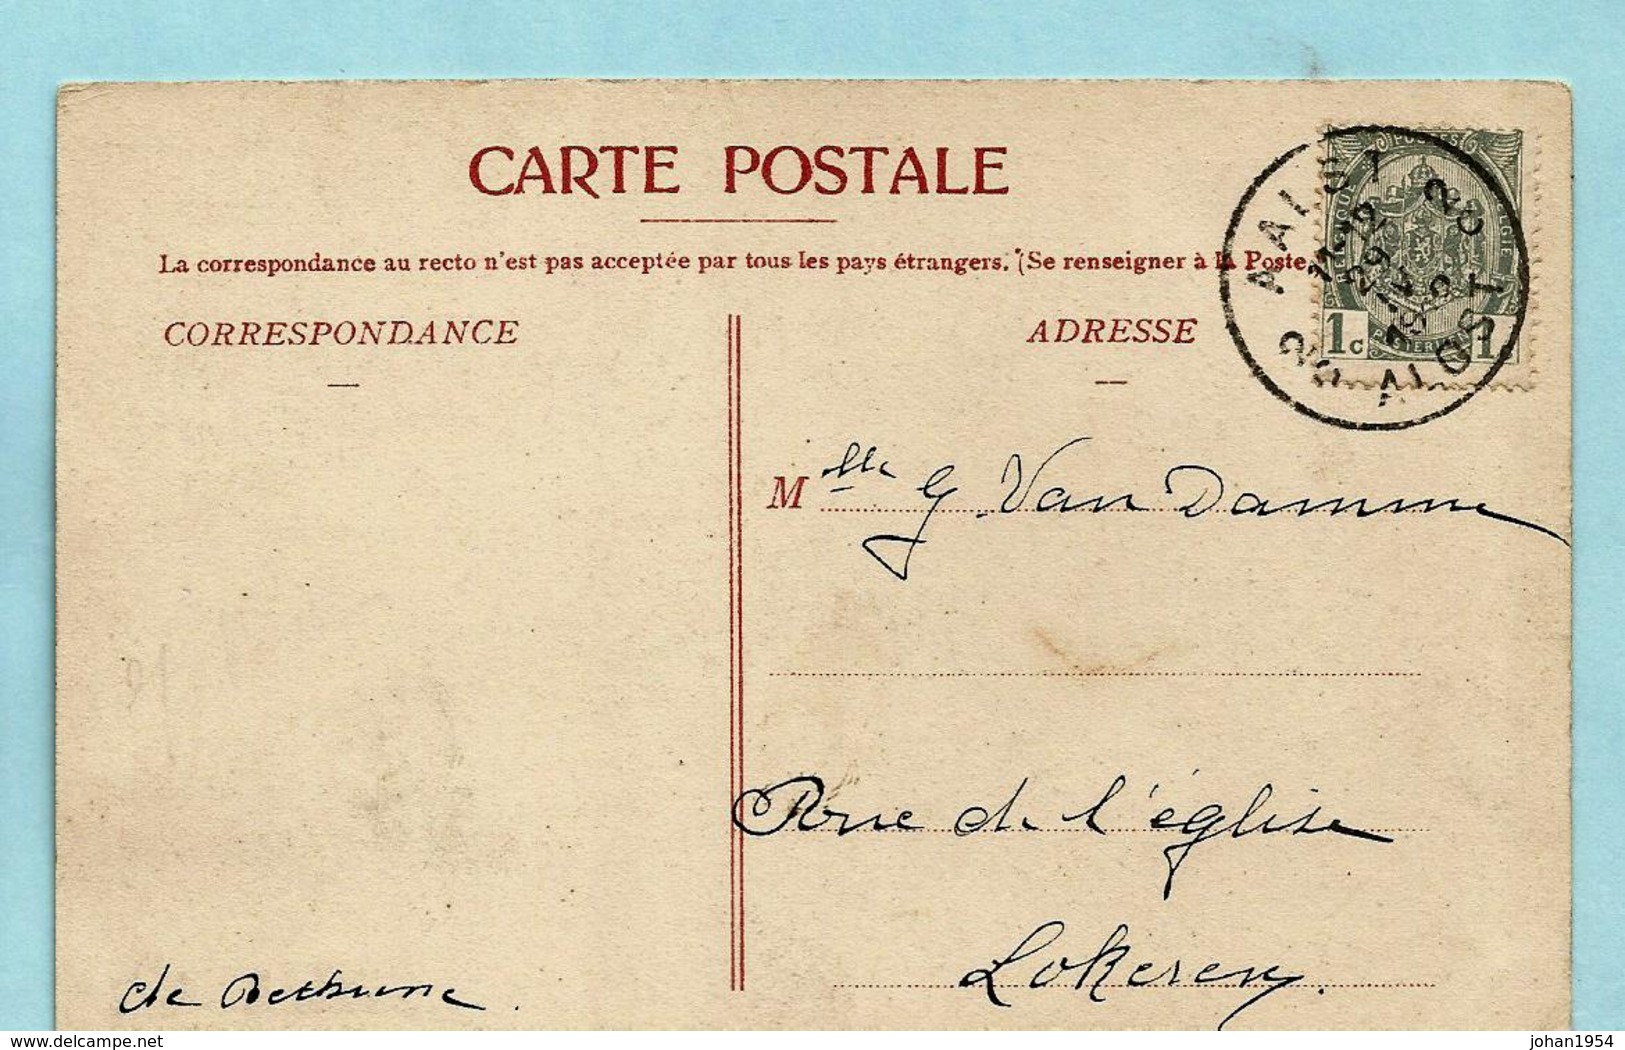 CARTE POSTALE
La correspondance au recto n'est pas acceptée par tous les pays étrangers. (Se renseigner à la Poste
CORRESPONDANCE
ADRESSE
POSTES
1c 1
AALST
ALOST
Mlle G. Van Damme
Rue de l'église
Lokeren.
de Bethune.
delcampe.net
johan1954